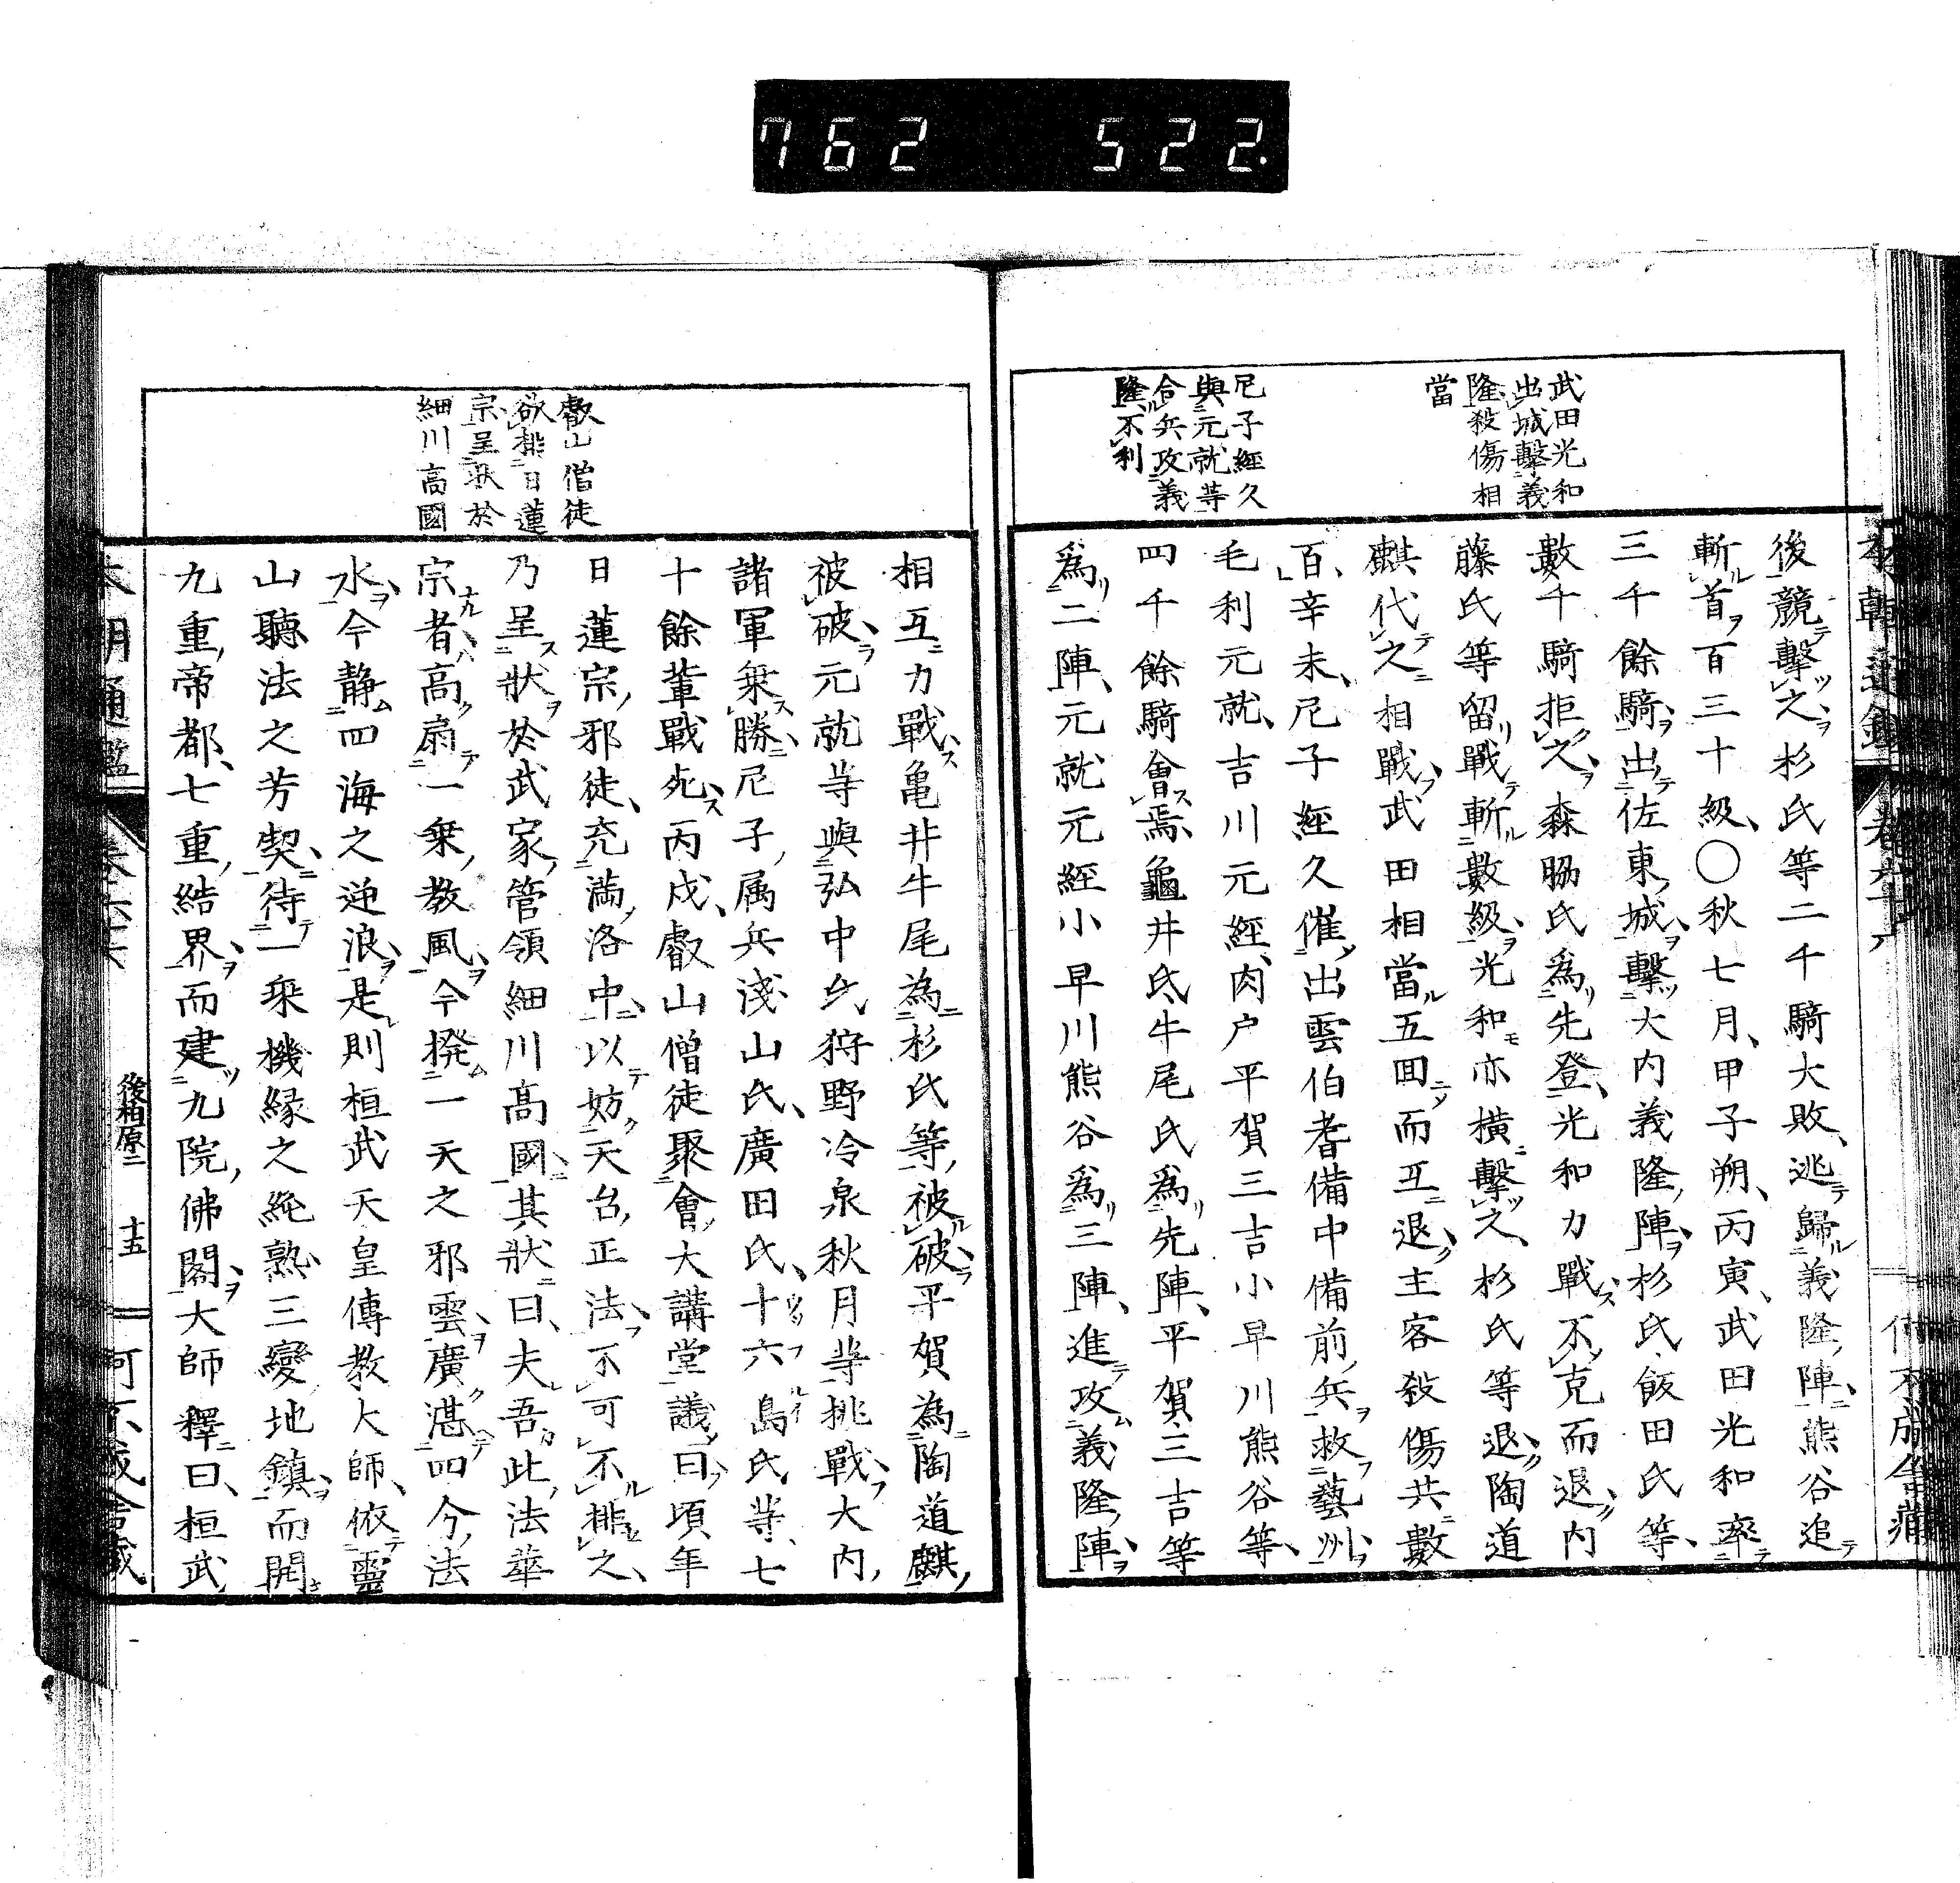 762 522.
武田光和
出城擊義
隆殺傷相
當
尼子經久
與元就等
合兵攻義
隆不利
後競擊之杉氏等二千騎大敗逃歸義隆陣熊谷追
斬首百三十級〇秋七月甲子朔丙寅武田光和率
三千餘騎出佐東城擊大内義隆陣杉氏飯田氏等
數千騎拒之森脇氏爲先登光和力戰不克而退内
藤氏等留戰斬數級光和亦横擊之杉氏等退陶道
麒代之相戰武田相當五囬而互退主客殺傷共數
百辛未尼子經久催出雲伯耆備中備前兵救藝州
毛利元就吉川元經肉户平賀三吉小早川熊谷等
四千餘騎會焉龜井氏牛尾氏爲先陣平賀三吉等
爲二陣元就元經小早川熊谷爲三陣進攻義隆陣
叡山僧徒
欲排日蓮
宗呈狀於
細川高國
相互力戰亀井牛尾為杉氏等被破平賀為陶道麒
被破元就等與弘中氏狩野冷泉秋月等挑戰大内
諸軍乗勝尼子属兵淺山氏廣田氏十六島氏等七
十餘輩戰死丙戌叡山僧徒聚會大講堂議曰頃年
日蓮宗邪徒充満洛中以妨天台正法不可不排之
乃呈狀於武家管領細川髙國其狀曰夫吾此法華
宗者高扇一乗教風令撥一天之邪雲廣湛四今法
水今静四海之逆浪是則桓武天皇傳教大師依靈
山聽法之芳契待一乗機縁之純熟三變地鎮而開
九重帝都七重結界而建九院佛閣大師釋曰桓武
本朝通鑑
後柏原二
十五